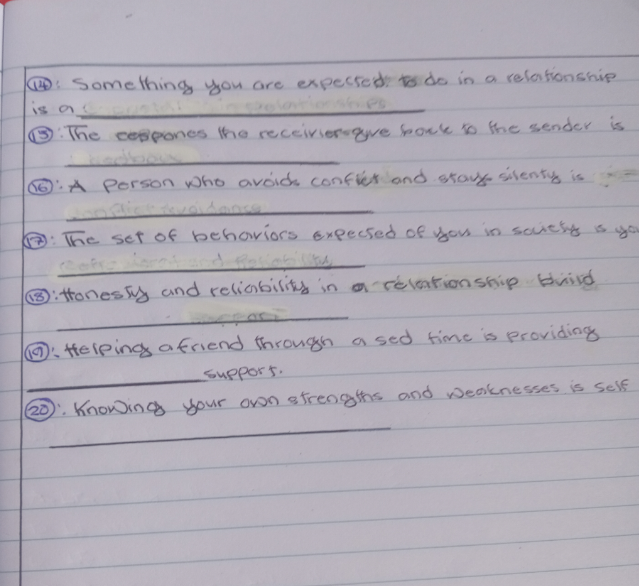 14: Something you are expected to do in a relationship
is a
15: The respones the receivier give back to the sender is
16: A person who avoids conflict and stays silently is
17: The set of behaviors expected of you in society is yo
18: Honesty and reliability in a relationship build
19: Helping a friend through a sed time is providing
support.
20: Knowing your own strengths and weaknesses is self